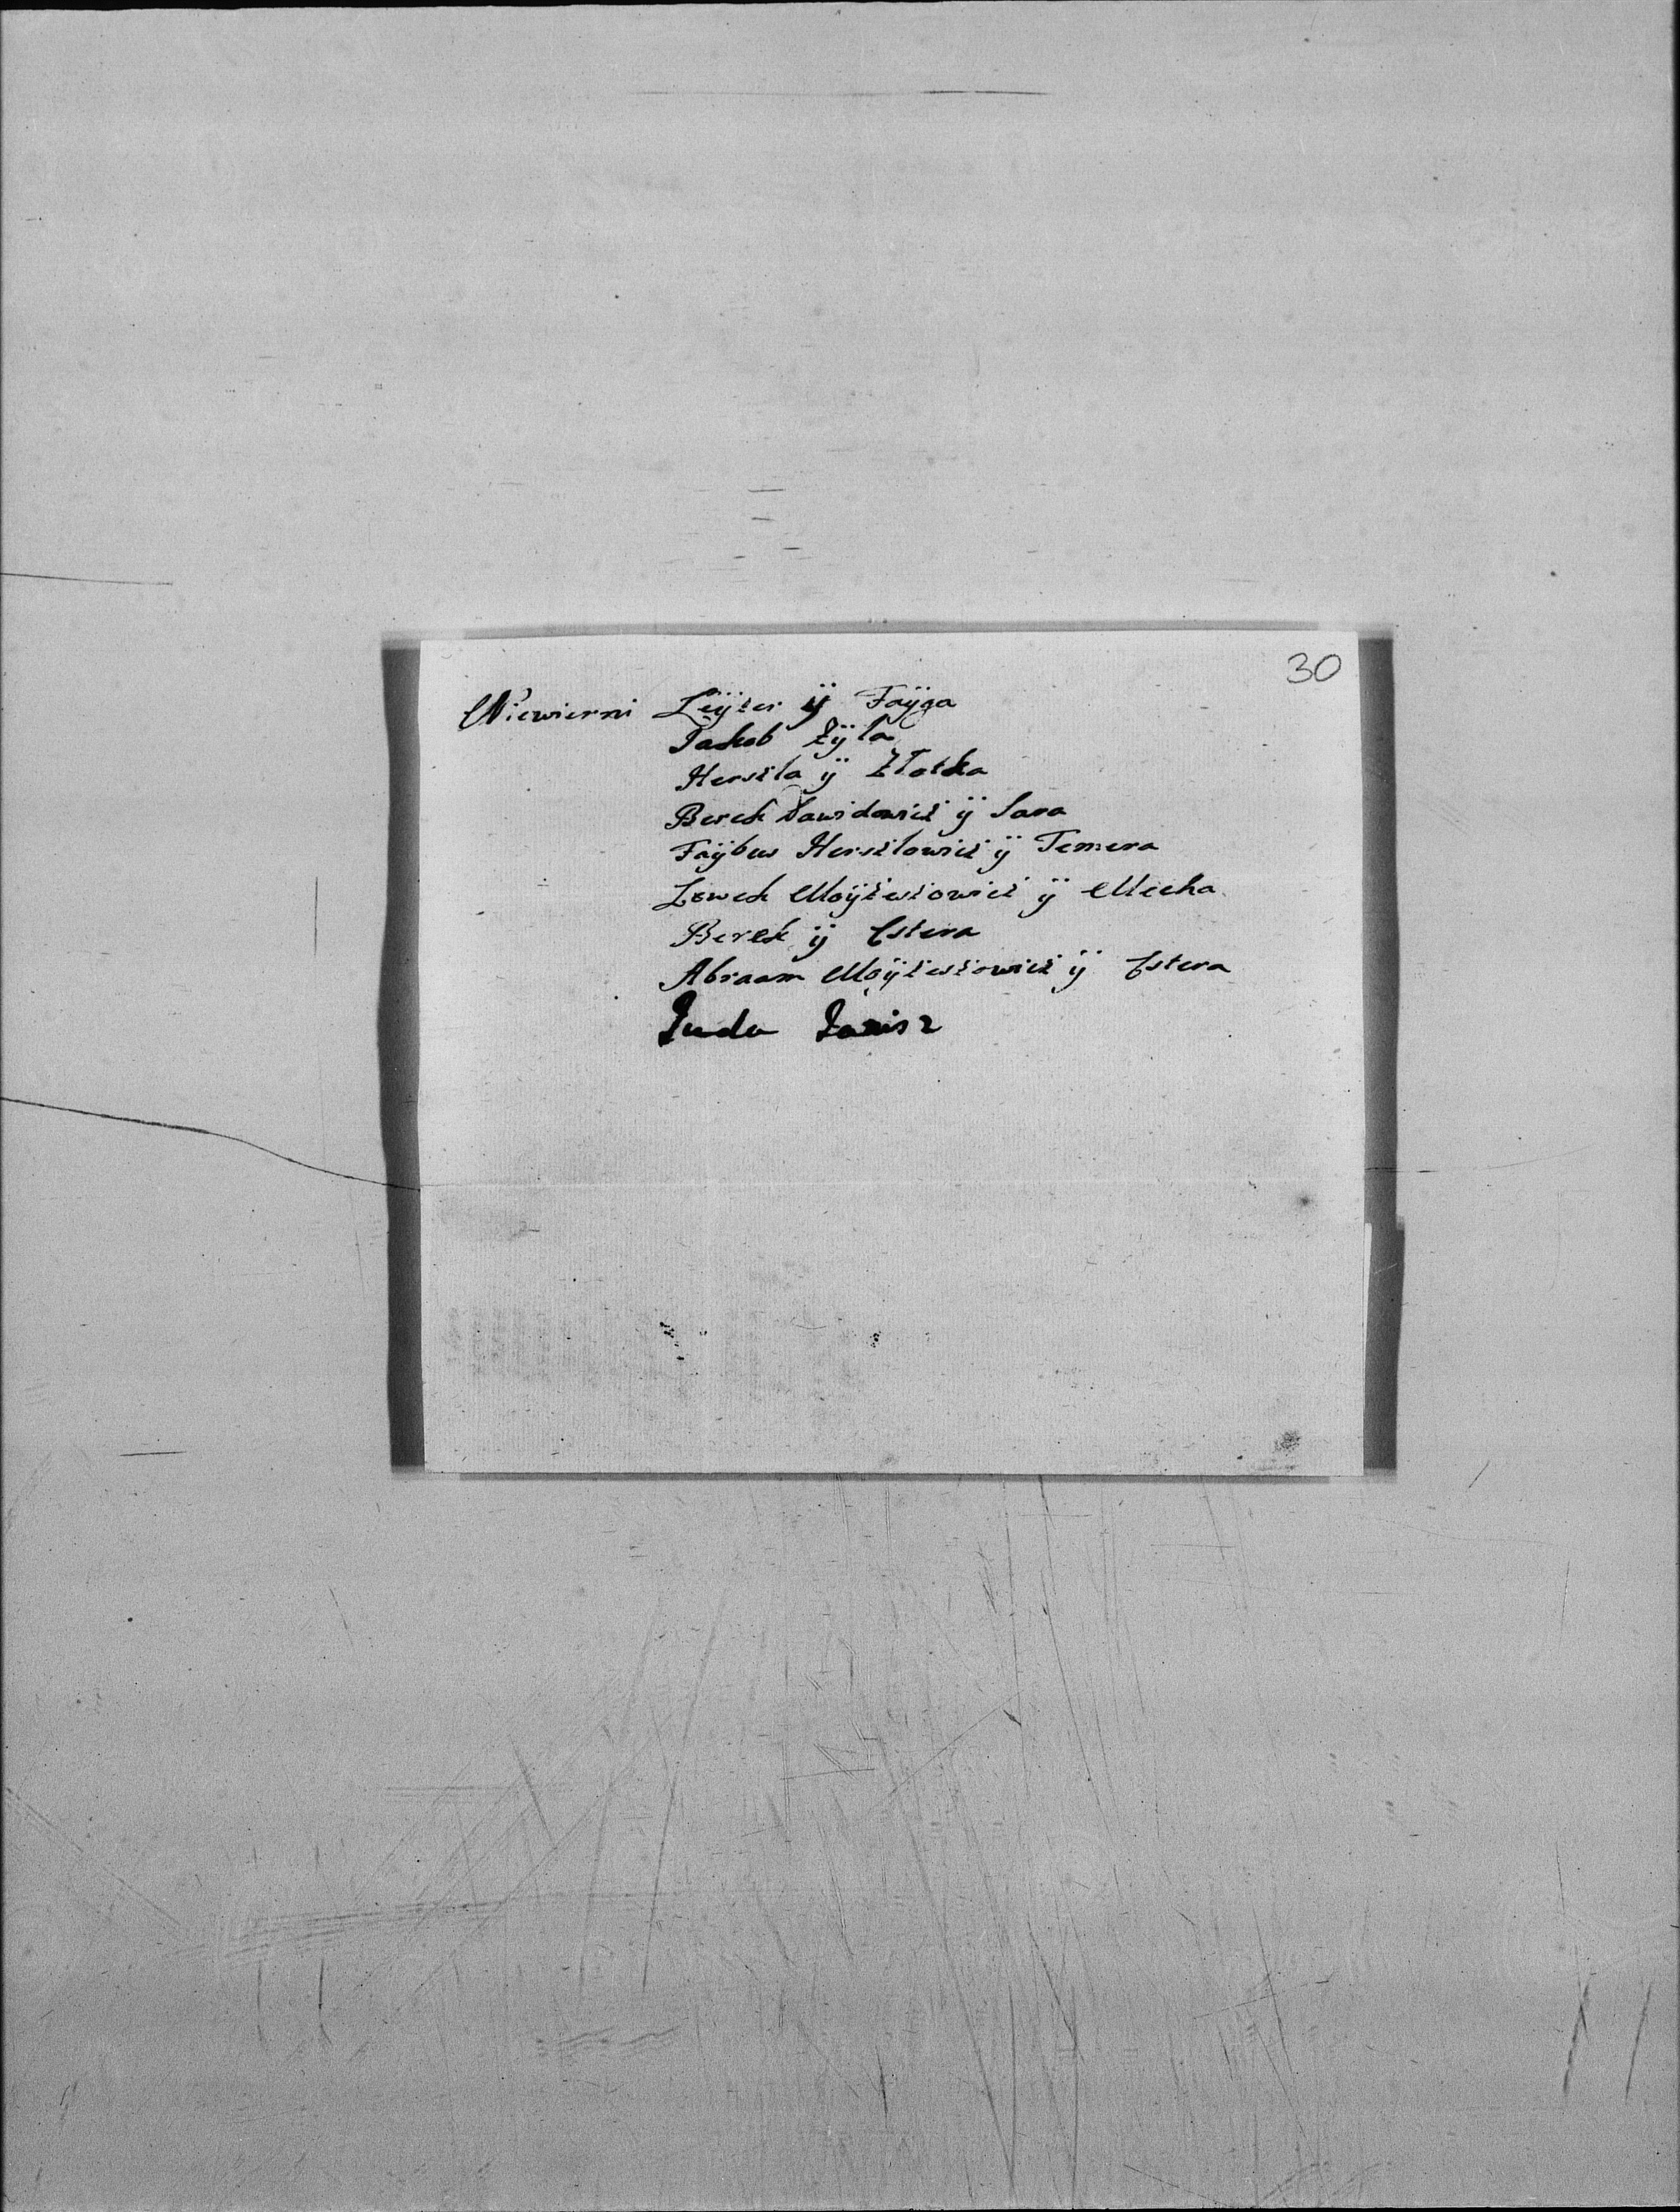 30
Niewierni Leÿzer ÿ Faÿga
Jackob Zÿla
Herszla ÿ Złotka
Berek Dawidowicz ÿ Sara
Faÿbus Herszlowicz ÿ Temera
Lewek Moÿzeszowicz ÿ Mecha
Berek ÿ Estera
Abraam Moÿzeszowicz ÿ Estera
Juda